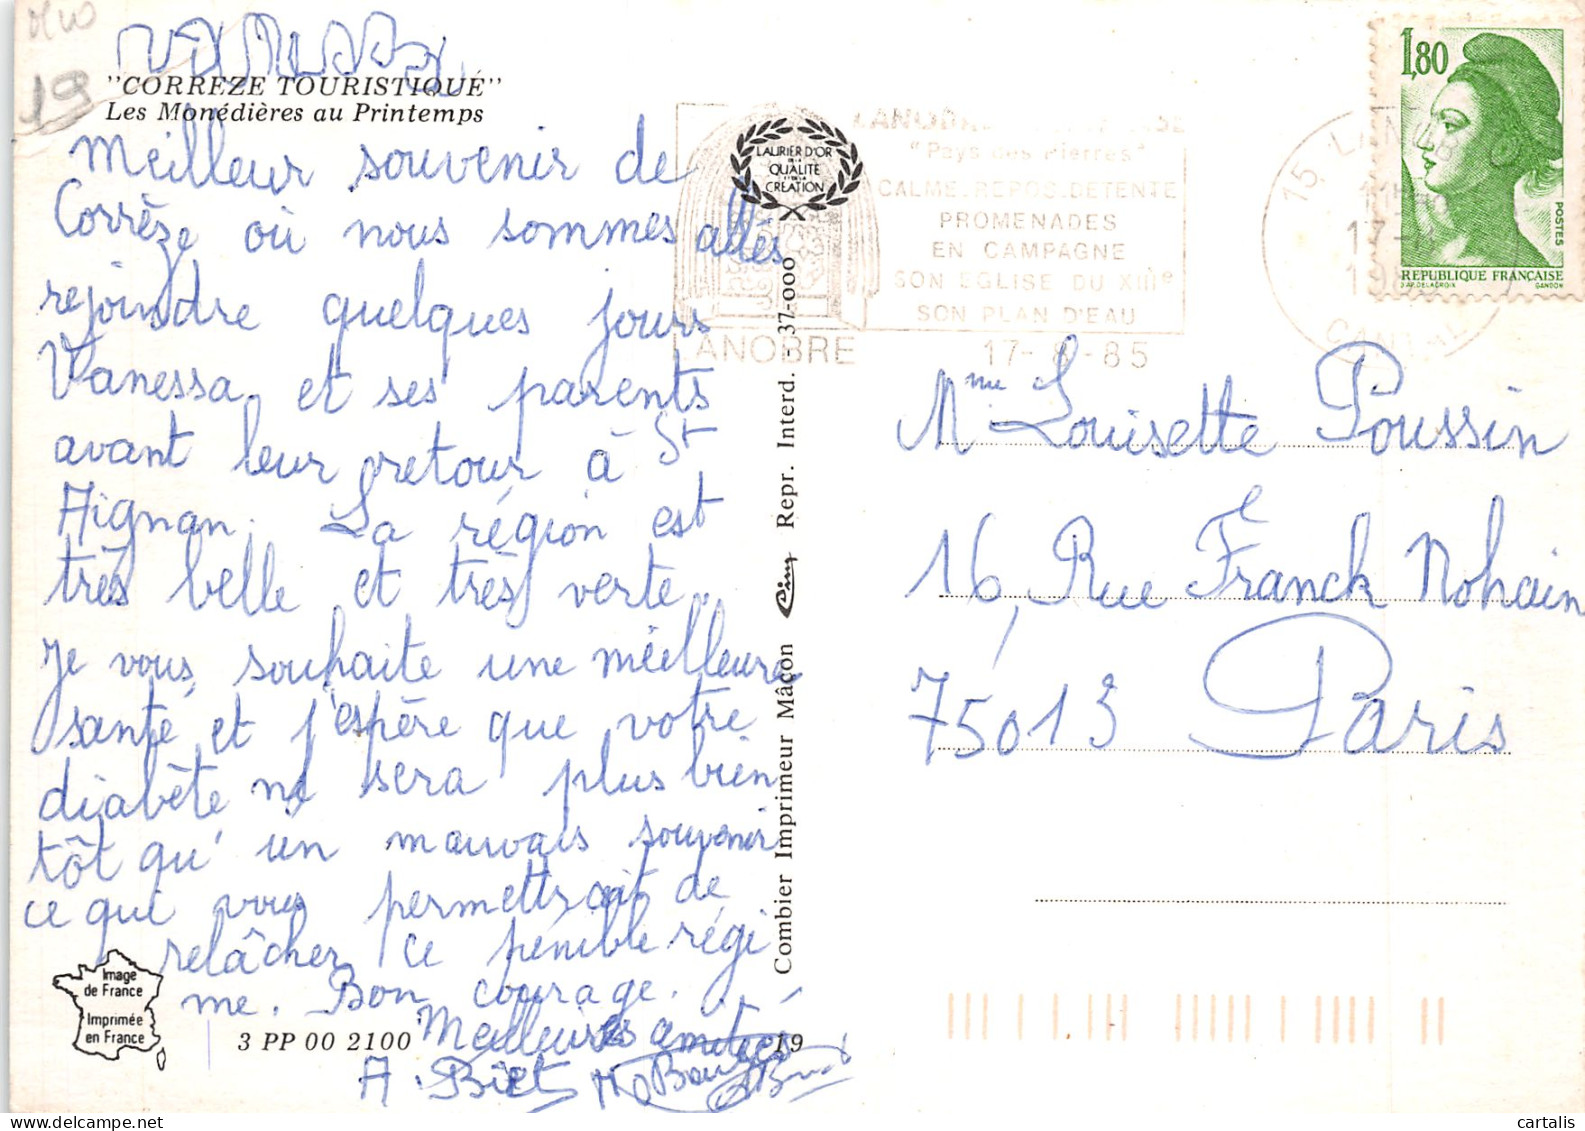 19
Vanessa
"CORREZE TOURISTIQUE"
Les Monédières au Printemps
Meilleur souvenir de
Corrèze où nous sommes allés
rejoindre quelques jours
Vanessa et ses parents
avant leur retour à St
Aignan. La région est
très belle et très verte.
Je vous souhaite une meilleure
santé et j'espère que votre
diabète ne sera plus bien
tôt qu'un mauvais souvenir
ce qui vous permettrait de
relâcher ce pénible régi
me. Bon courage.
Meilleures amitiés
A. Biet
Image
de France
Imprimée
en France
3 PP 00 2100
19
LAURIER D'OR
DE LA
QUALITE
ET DE LA
CREATION
Combier Imprimeur Mâcon Cim Repr. Interd. - 37-000
"Pays des Pierres"
CALME.REPOS.DETENTE
PROMENADES
EN CAMPAGNE
SON EGLISE DU XIIe
SON PLAN D'EAU
LANOBRE
17-8-85
15 LANOBRE
CANTAL
1,80
POSTES
REPUBLIQUE FRANÇAISE
D'AP. DELACROIX GANDON
Mme Louisette Poussin
16, Rue Franck Nohain
75013 Paris
cartalis